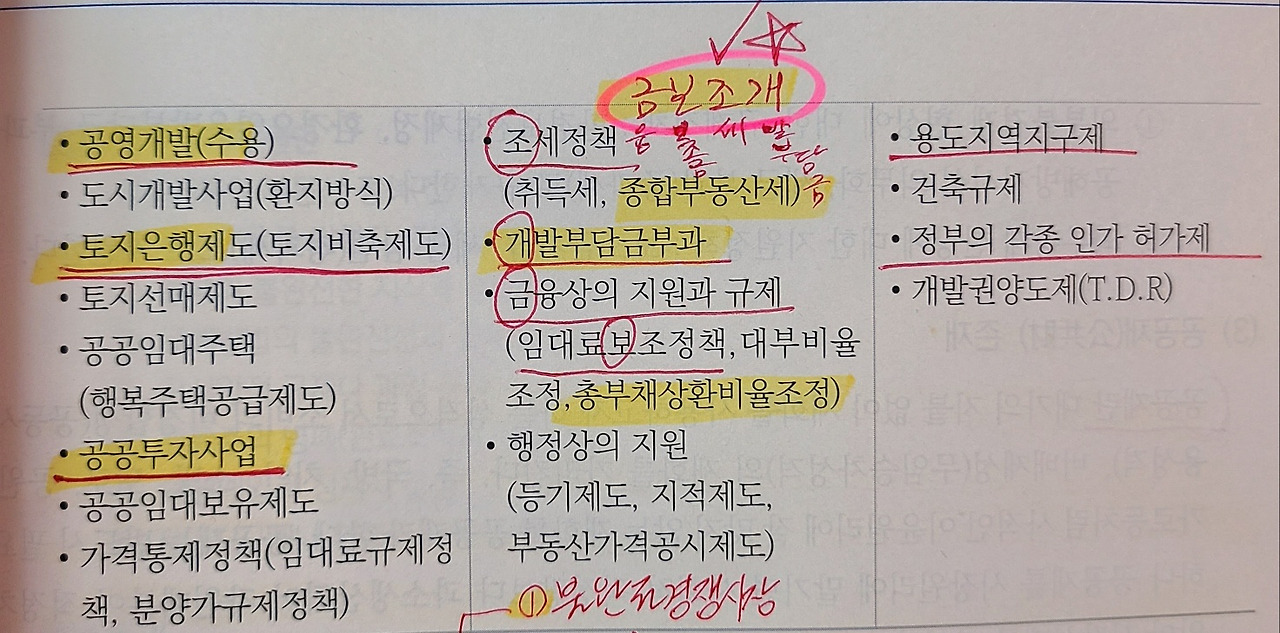 금보조개
융 보 세 발
조 부담
금
• 공영개발(수용)
• 도시개발사업(환지방식)
• 토지은행제도(토지비축제도)
• 토지선매제도
• 공공임대주택
(행복주택공급제도)
• 공공투자사업
• 공공임대보유제도
• 가격통제정책(임대료규제정
책, 분양가규제정책)
• 조세정책
(취득세, 종합부동산세)
• 개발부담금부과
• 금융상의 지원과 규제
(임대료보조정책, 대부비율
조정, 총부채상환비율조정)
• 행정상의 지원
(등기제도, 지적제도,
부동산가격공시제도)
① 불완전경쟁시장
• 용도지역지구제
• 건축규제
• 정부의 각종 인가 허가제
• 개발권양도제(T.D.R)